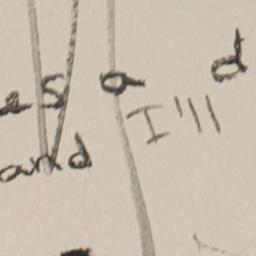 es a d
and I'll